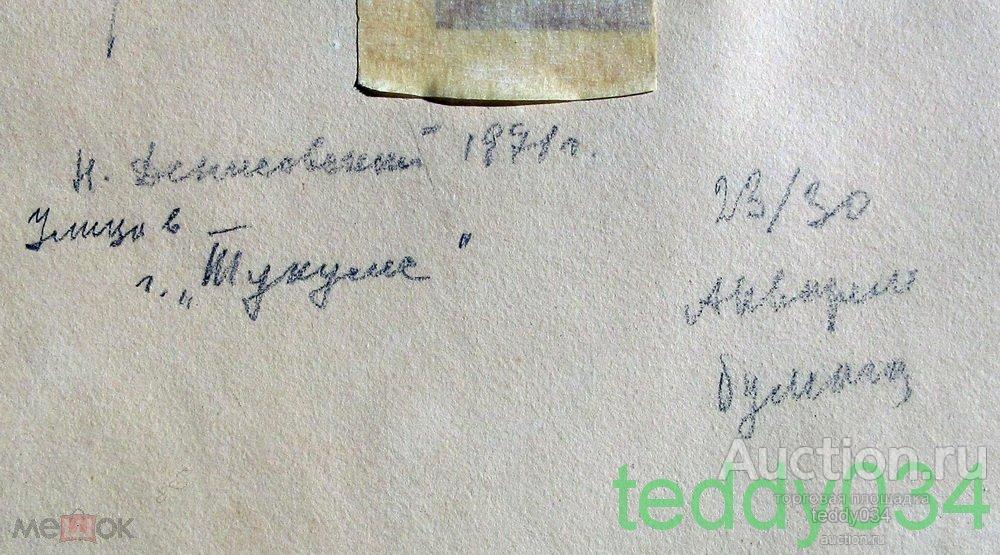 Н. Денисовский 1971г.
Улица в
г. „Тукумс"
23/30
Акварель
бумага
Auction.ru
торговая площадка
teddy034
teddy034
auction.ru
мешок